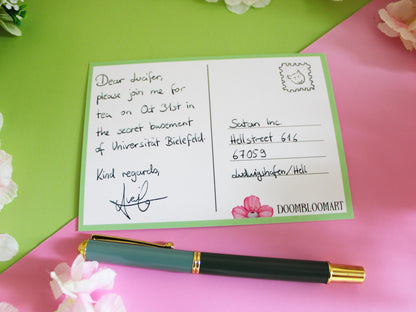 Dear Lucifer,
please join me for
tea on Oct 31st in
the secret basement
of Universität Bielefeld.
Kind regards,
Satan Inc
Hellstreet 616
67059
Ludwigshafen/Hell
DOOMBLOOMART